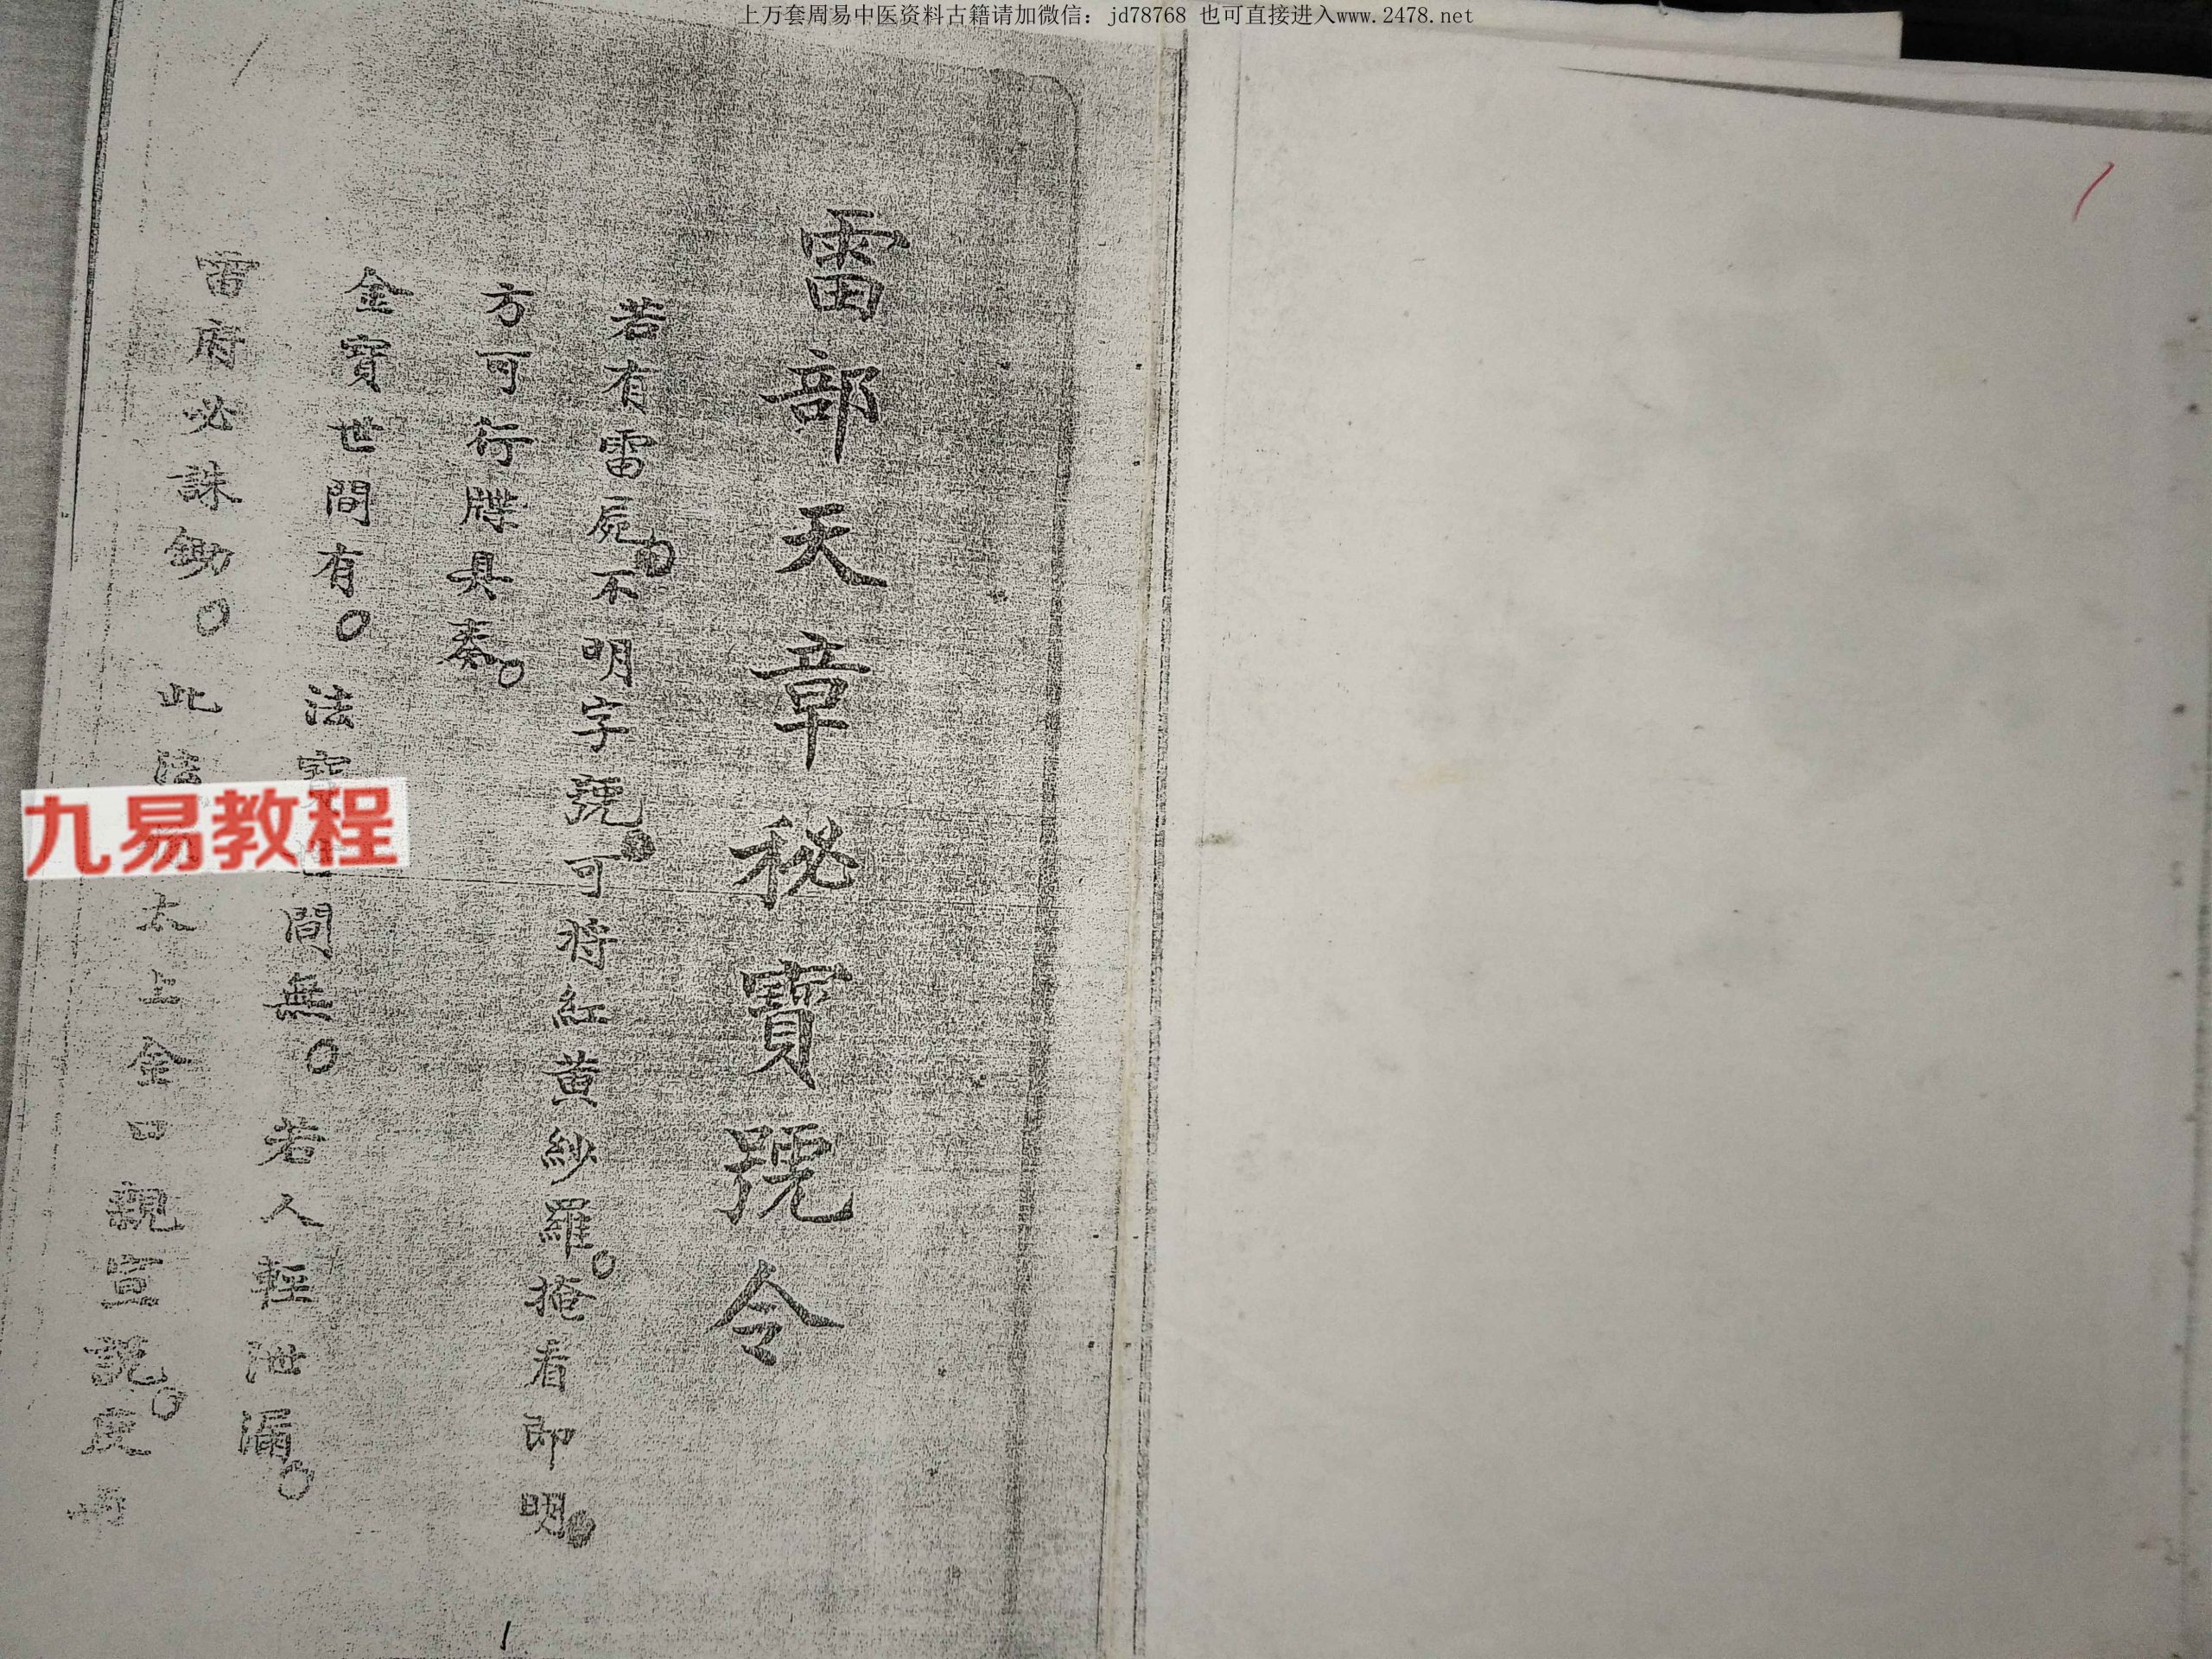 上万套周易中医资料古籍请加微信：jd78768 也可直接进入www.2478.net
雷部天章秘寶號令
若有雷屍。不明字號。可將紅黃紗羅。掩看即明。
方可行牒具奏。
金寶世間有。法寶世間無。若人輕泄漏。
雷府必誅鋤。此法太上金口親宣說。
九易教程
1